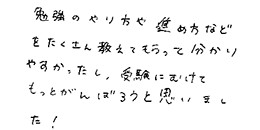 勉強のやり方や進め方など
をたくさん教えてもらって分かり
やすかったし、受験にむけて
もっとがんばろうと思いまし
た!